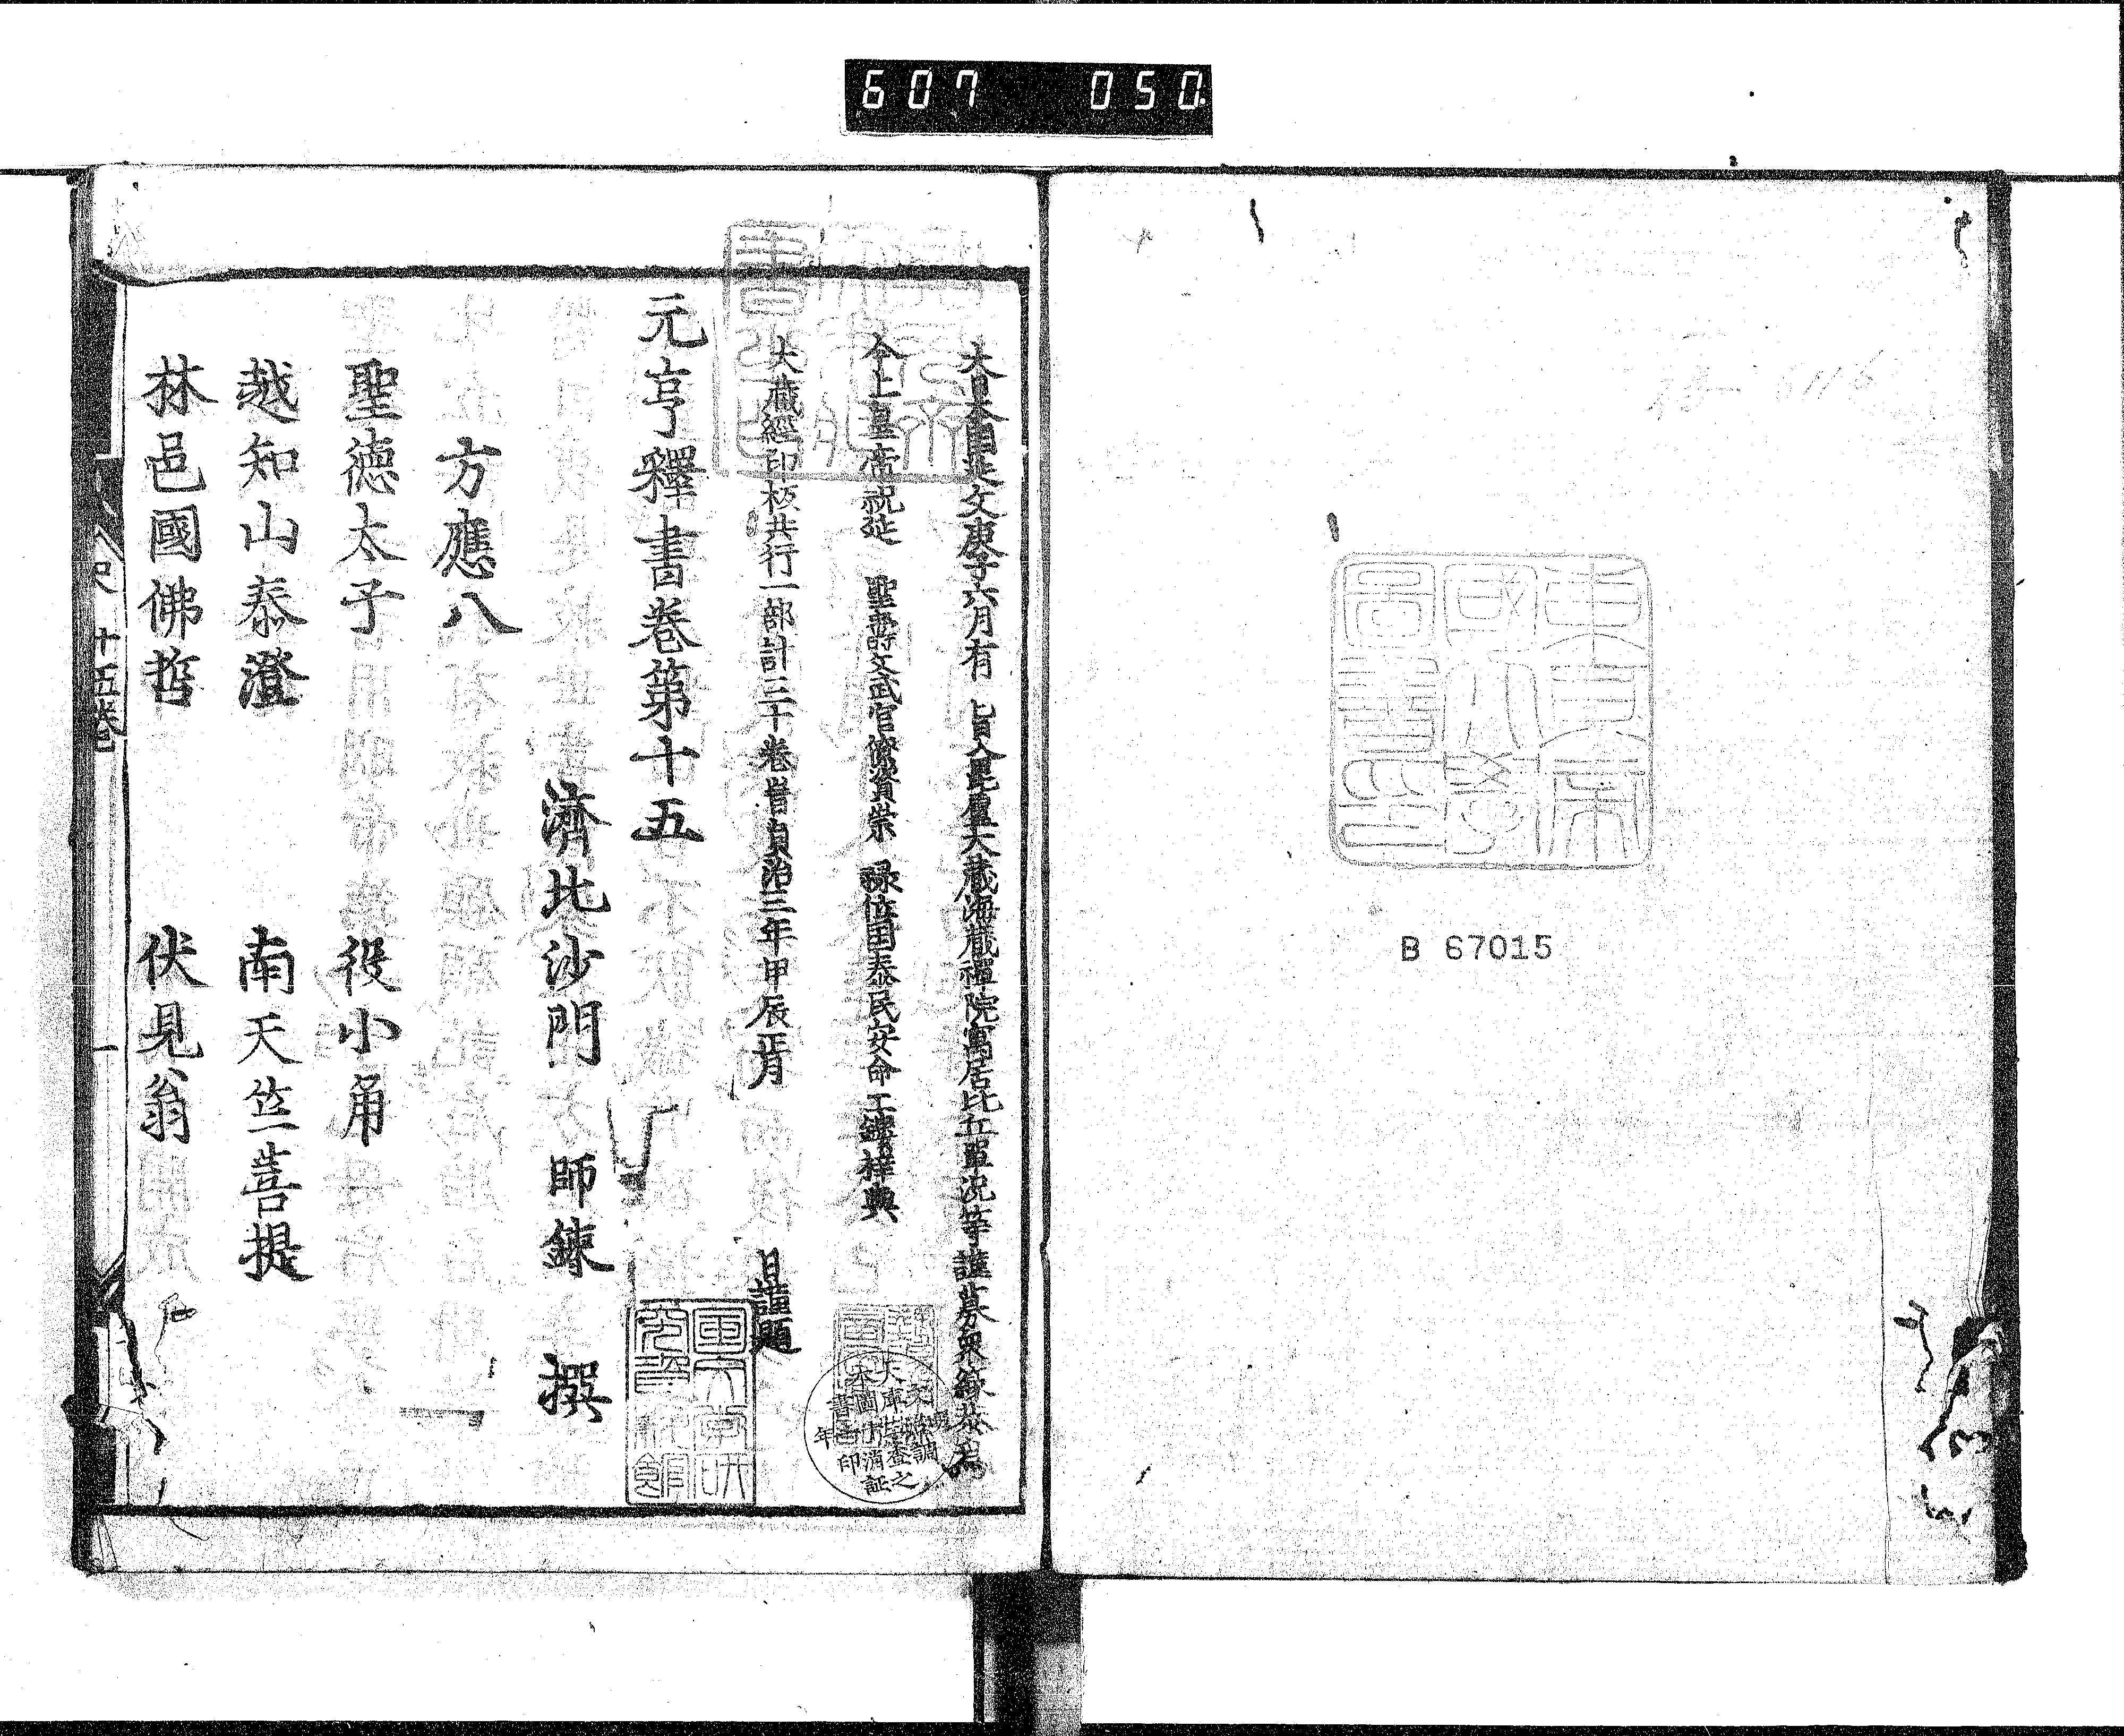 607 050
B 67015
大日本國延文庚子六月有　旨入毘盧大藏海藏禪院寓居比丘單況等謹募衆緣恭爲
今上皇帝祝延　聖壽文武官僚資崇　祿位國泰民安命工鏤梓與
大藏經印板共行一部計三十卷旹貞治三年甲辰正月　日謹題
元亨釋書卷第十五
濟北沙門　師鍊　撰
方應八
聖德太子　役小角
越知山泰澄　南天竺菩提
林邑國佛哲　伏見翁
十五卷
一